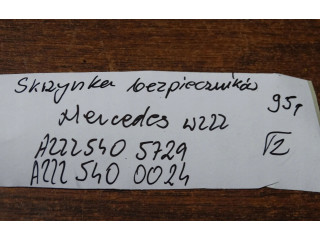 Skrzynka bezpieczników
95,
Mercedes W222
A222 540 5729
A222 540 0024